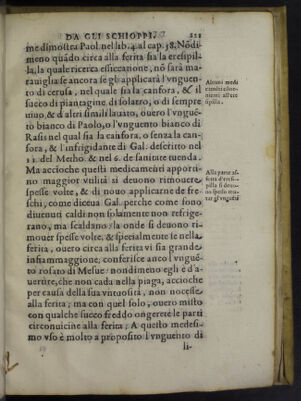 DA GLI SCHIOPPI. 221
ne dimostra Paol. nel lib. 4. al cap. 38. Nõdi-
meno quãdo circa alla ferita sia la eresipil-
la, la quale ricerca essiccatione, nõ sarà ma-
rauiglia se ancora se gli applicarà l'vnguen-
to di cerusa, nel quale sia la canfora, & il
succo di piantagine di solatro, o di sempre
uiuo, & d'altri simili lauato, ouero l'vngué
to bianco di Paolo, o l'vnguento bianco di
Rasi nel qual sia la canfora, o senza la can-
fora, & l'infrigidante di Gal. descritto nel
11. del Metho. & nel 6. de sanitate tuenda.
Ma accioche questi medicamenti apporti-
no maggior vtilità si deuono rimouere
spesse volte, & di nouo applicarne de fre-
schi, come diceua Gal. perche come sono
diuenuti caldi non solamente non refrige-
rano, ma scaldano: la onde si deuono ri-
mouer spesse volte, & specialmente se nella
ferita, ouero circa alla ferita vi sia grande
infiammaggione, conferisce anco l'vngué-
to rosato di Mesue: nondimeno egli è d'a-
uertire, che non cada nella piaga, accioche
per causa della sua vntuosità, non nocesse
alla ferita, ma con quel solo, ouero misto
con qualche succo freddo ongerete le parti
circonuicine alla ferita; A questo medesi-
mo vso è molto a proposito l'vnguento di
li-
Alcuni medi
camẽti cõue-
nienti all'ere
sipilla.
Alla parte af-
si deuo-
no spesso mu-
tar gl'vnguẽti